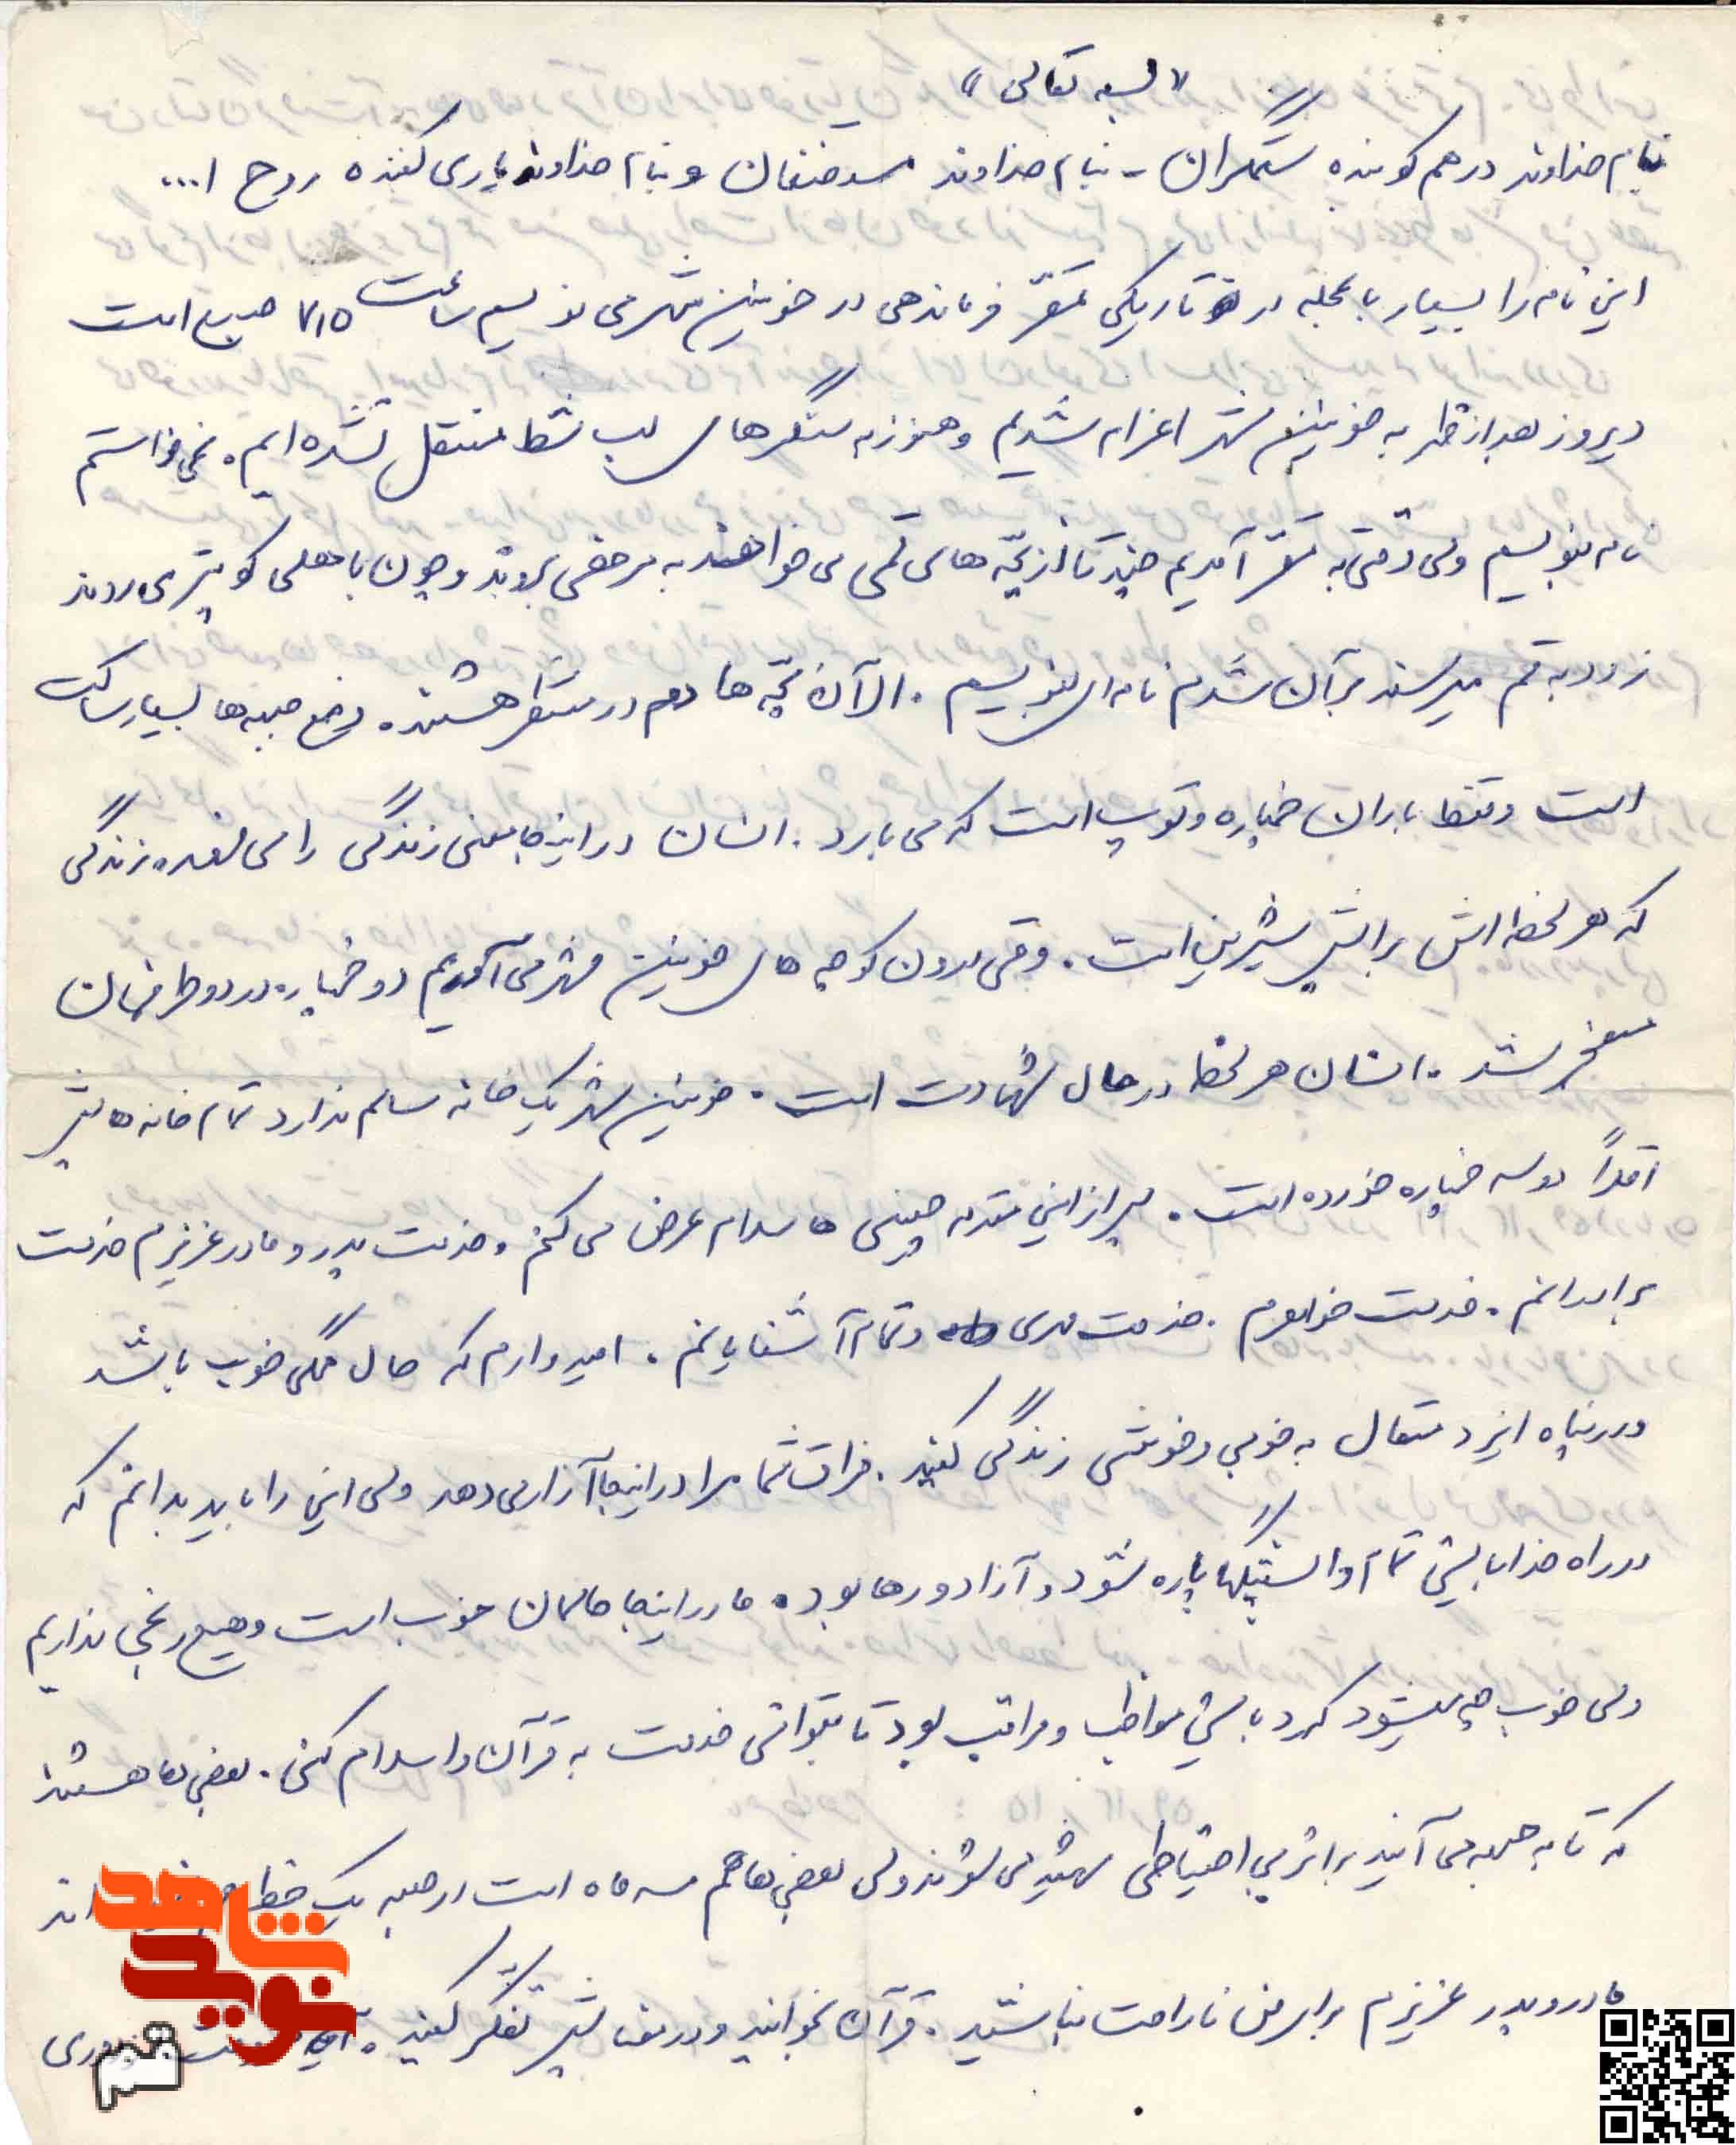 « بسمه تعالی »
بنام خداوند درهم کوبنده ستمگران - بنام خداوند مستضعفان و بنام خداوند یاری کننده روح ا...
این نامه را بسیار با عجله در تاریکی مقرّ فرماندهی در خونین شهر می نویسم ساعت ۷/۱۵ صبح است
دیروز بعد از ظهر به خونین شهر اعزام شدیم و هنوز به سنگرهای لب شط منتقل نشده ایم. نمی خواستم
نامه بنویسم ولی وقتی به مقرّ آمدیم چند تا از بچّه های قمی می خواهند به مرخصی بروند و چون با هلی کوپتر می روند
زود به قم میرسند بر آن شدم نامه ای بنویسم. الآن بچّه ها هم در مقر هستند. وضع جبهه ها بسیار ساکت
است و فقط باران خمپاره و توپ است که می بارد. انسان در اینجا معنی زندگی را می فهمد. زندگی
که هر لحظه اش برایش شیرین است. وقتی درون کوچه های خونین شهر می آمدیم دو خمپاره در دو طرفمان
منفجر شد. انسان هر لحظه در حال شهادت است. خونین شهر یک خانه سالم ندارد تمام خانه هایش
اقلاً دو سه خمپاره خورده است. پس از این مقدمه چینی ها سلام عرض می کنم. خدمت پدر و مادر عزیزم خدمت
برادرانم. خدمت خواهرم. خدمت و تمام آشنایانم. امیدوارم که حال همگی خوب باشد
در پناه ایزد متعال به خوبی و خوشی زندگی کنید. فراق شما مرا در اینجا آزار می دهد ولی این را باید بدانم که
در راه خدا بایستی تمام وابستگیها پاره شود و آزاد و رها بود. ما در اینجا حالمان خوب است و هیچ رنجی نداریم
ولی خوب چه میشود کرد بایستی مواظب و مراقب بود تا بتوانی خدمت به قرآن و اسلام کنی. بعضی ها هستند
که تا به جبهه می آیند بر اثر بی احتیاطی شهید می شوند ولی بعضی ها هم سه ماه است در جبهه یک اند
مادر و پدر عزیزم برای من ناراحت نباشید. قرآن بخوانید و در معنایش تفکر کنید.
شاهد
نوید
قم